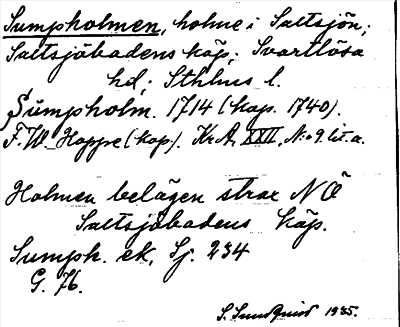 Sumpholmen, holme i Saltsjön;
Saltsjöbadens köp; Svartlösa
hd; Sthlms l.
Sumpholm. 1714 (kop. 1740).
F. W. Hoppe (kop). Kr A, XXII, N:o 9. lit. a.
Holmen belägen strax N Ö
Saltsjöbadens köp.
Sumph. ek, Sj. 234
G. 76.
S. Sundquist 1935.